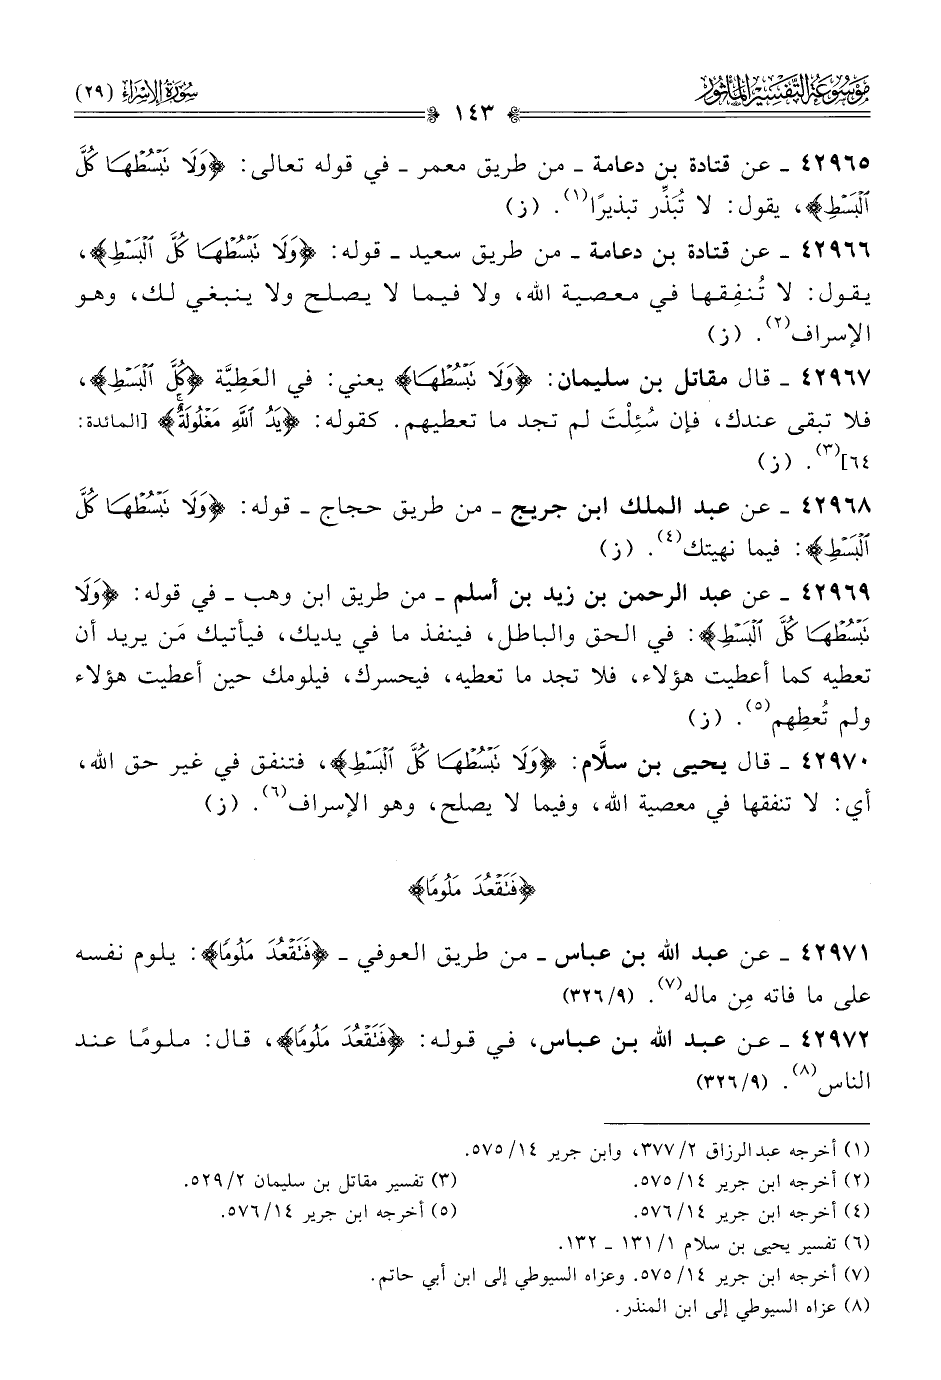 مَوْسُوعَةُ التَّفْسِيرِ المَأْثُورِ
سُورَةُ الإِسْرَاءِ (٢٩)
١٤٣
٤٢٩٦٥ ـ عن قتادة بن دعامة ـ من طريق معمر ـ في قوله تعالى: ﴿وَلَا تَبْسُطْهَا كُلَّ
ٱلْبَسْطِ﴾، يقول: لا تُبَذِّر تبذيرًا(١). (ز)
٤٢٩٦٦ ـ عن قتادة بن دعامة ـ من طريق سعيد ـ قوله: ﴿وَلَا تَبْسُطْهَا كُلَّ ٱلْبَسْطِ﴾،
يقول: لا تُنفِقها في معصية الله، ولا فيما لا يصلح ولا ينبغي لك، وهو
الإسراف(٢). (ز)
٤٢٩٦٧ ـ قال مقاتل بن سليمان: ﴿وَلَا تَبْسُطْهَا﴾ يعني: في العَطِيَّة ﴿كُلَّ ٱلْبَسْطِ﴾،
فلا تبقى عندك، فإن سُئِلْتَ لم تجد ما تعطيهم. كقوله: ﴿يَدُ ٱللَّهِ مَغْلُولَةٌ﴾ [المائدة:
٦٤](٣). (ز)
٤٢٩٦٨ ـ عن عبد الملك ابن جريج ـ من طريق حجاج ـ قوله: ﴿وَلَا تَبْسُطْهَا كُلَّ
ٱلْبَسْطِ﴾: فيما نهيتك(٤). (ز)
٤٢٩٦٩ ـ عن عبد الرحمن بن زيد بن أسلم ـ من طريق ابن وهب ـ في قوله: ﴿وَلَا
تَبْسُطْهَا كُلَّ ٱلْبَسْطِ﴾: في الحق والباطل، فينفذ ما في يديك، فيأتيك مَن يريد أن
تعطيه كما أعطيت هؤلاء، فلا تجد ما تعطيه، فيحسرك، فيلومك حين أعطيت هؤلاء
ولم تُعطِهم(٥). (ز)
٤٢٩٧٠ ـ قال يحيى بن سلَّام: ﴿وَلَا تَبْسُطْهَا كُلَّ ٱلْبَسْطِ﴾، فتنفق في غير حق الله،
أي: لا تنفقها في معصية الله، وفيما لا يصلح، وهو الإسراف(٦). (ز)
﴿فَتَقْعُدَ مَلُومًا﴾
٤٢٩٧١ ـ عن عبد الله بن عباس ـ من طريق العوفي ـ ﴿فَتَقْعُدَ مَلُومًا﴾: يلوم نفسه
على ما فاته مِن ماله(٧). (٩/ ٣٢٦)
٤٢٩٧٢ ـ عن عبد الله بن عباس، في قوله: ﴿فَتَقْعُدَ مَلُومًا﴾، قال: ملومًا عند
الناس(٨). (٩/ ٣٢٦)
(١) أخرجه عبدالرزاق ٢/ ٣٧٧، وابن جرير ١٤/ ٥٧٥.
(٢) أخرجه ابن جرير ١٤/ ٥٧٥. (٣) تفسير مقاتل بن سليمان ٢/ ٥٢٩.
(٤) أخرجه ابن جرير ١٤/ ٥٧٦. (٥) أخرجه ابن جرير ١٤/ ٥٧٦.
(٦) تفسير يحيى بن سلام ١/ ١٣١ ـ ١٣٢.
(٧) أخرجه ابن جرير ١٤/ ٥٧٥. وعزاه السيوطي إلى ابن أبي حاتم.
(٨) عزاه السيوطي إلى ابن المنذر.